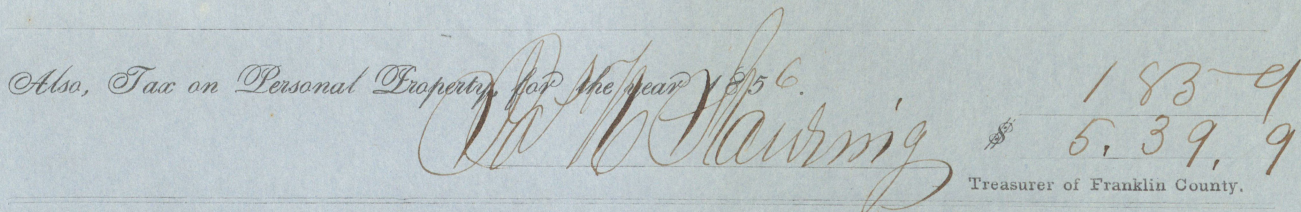 Also, Tax on Personal Property, for the year 1856. 1 83 9
$ 5.39,9
Treasurer of Franklin County.